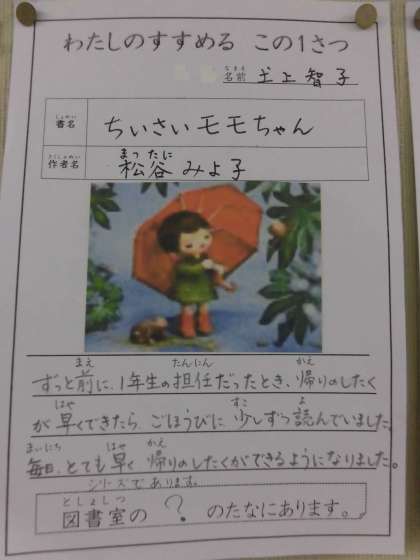 わたしのすすめる この1さつ
なまえ
名前 土上智子
しょめい
書名 ちいさいモモちゃん
さくしゃめい まつたに
作者名 松谷みよ子
まえ たんにん かえ
ずっと前に、1年生の担任だったとき、帰りのしたく
はや すこ よ
が早くできたら、ごほうびに少しずつ読んでいました。
まいにち はや かえ
毎日、とても早く帰りのしたくができるようになりました。
シリーズであります。
としょしつ
図書室の ? のたなにあります。